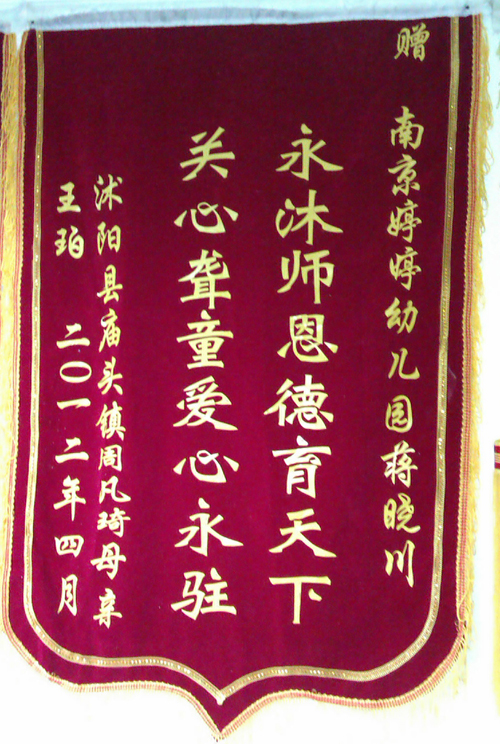 赠 南京婷婷幼儿园蒋晓川
永沐师恩德育天下
关心聋童爱心永驻
沭阳县庙头镇周凡琦母亲
王珀 二〇一二年四月